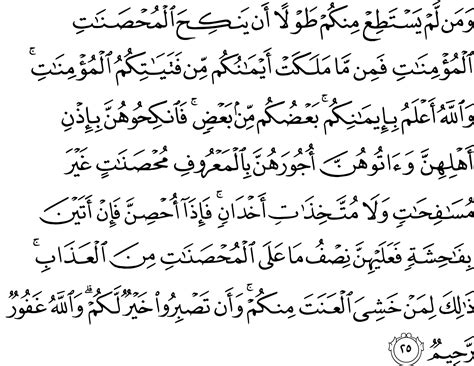 وَمَن لَّمْ يَسْتَطِعْ مِنكُمْ طَوْلًا أَن يَنكِحَ ٱلْمُحْصَنَـٰتِ
ٱلْمُؤْمِنَـٰتِ فَمِن مَّا مَلَكَتْ أَيْمَـٰنُكُم مِّن فَتَيَـٰتِكُمُ ٱلْمُؤْمِنَـٰتِ ۚ
وَٱللَّهُ أَعْلَمُ بِإِيمَـٰنِكُم ۚ بَعْضُكُم مِّنۢ بَعْضٍ ۚ فَٱنكِحُوهُنَّ بِإِذْنِ
أَهْلِهِنَّ وَءَاتُوهُنَّ أُجُورَهُنَّ بِٱلْمَعْرُوفِ مُحْصَنَـٰتٍ غَيْرَ
مُسَـٰفِحَـٰتٍ وَلَا مُتَّخِذَٰتِ أَخْدَانٍ ۚ فَإِذَآ أُحْصِنَّ فَإِنْ أَتَيْنَ
بِفَـٰحِشَةٍ فَعَلَيْهِنَّ نِصْفُ مَا عَلَى ٱلْمُحْصَنَـٰتِ مِنَ ٱلْعَذَابِ ۚ
ذَٰلِكَ لِمَنْ خَشِىَ ٱلْعَنَتَ مِنكُمْ ۚ وَأَن تَصْبِرُوا۟ خَيْرٌ لَّكُمْ ۗ وَٱللَّهُ غَفُورٌ
رَّحِيمٌ ٢٥